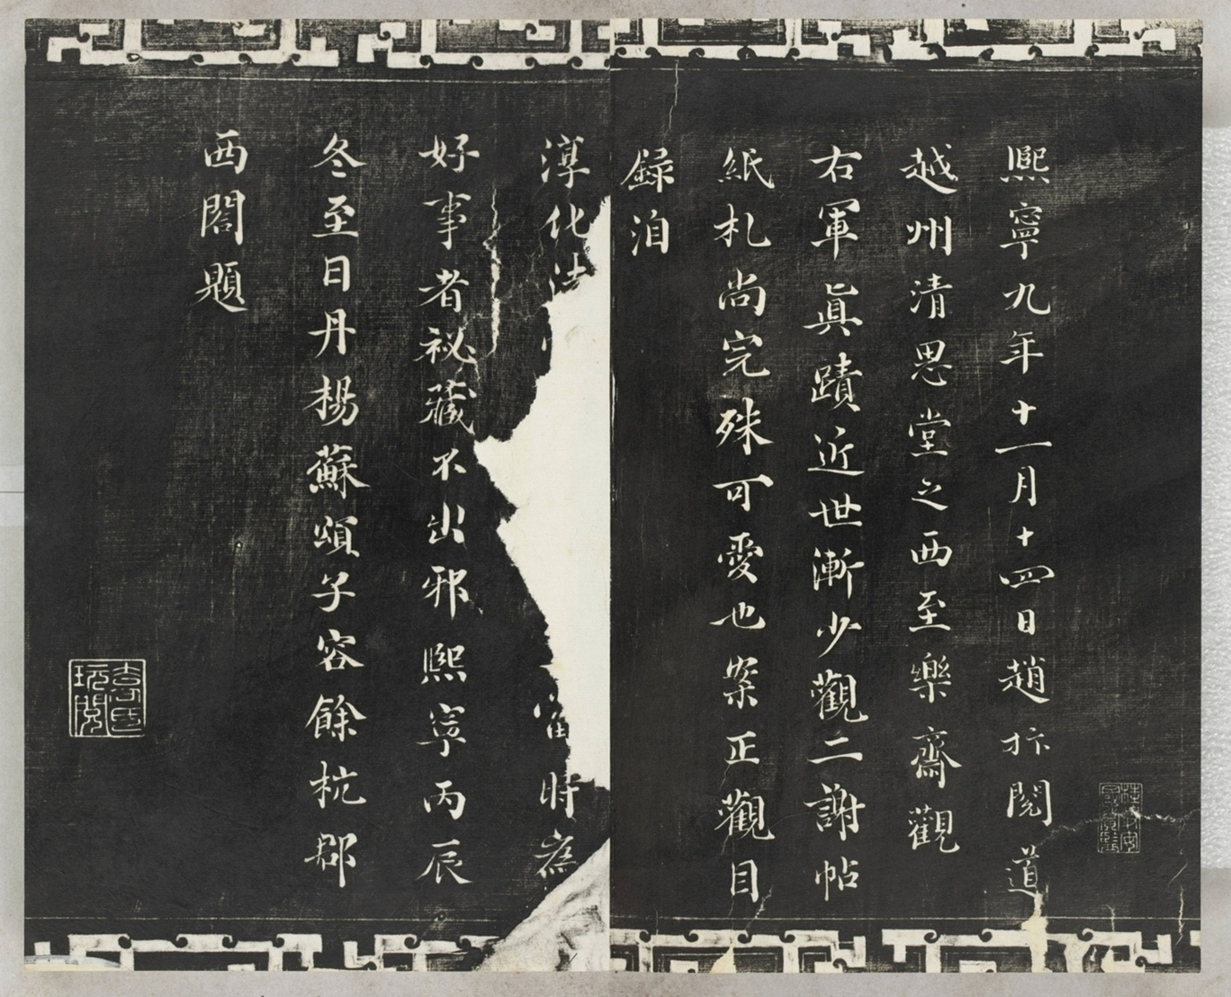 熙寧九年十一月十四日趙抃閱道
越州清思堂之西至樂齋觀
右軍眞蹟近世漸少觀二謝帖
紙札尚完殊可愛也案正觀目
録洎
淳化法時
好事者祕藏不出邪熙寧丙辰
冬至日丹楊蘇頌子容餘杭郡
西閣題